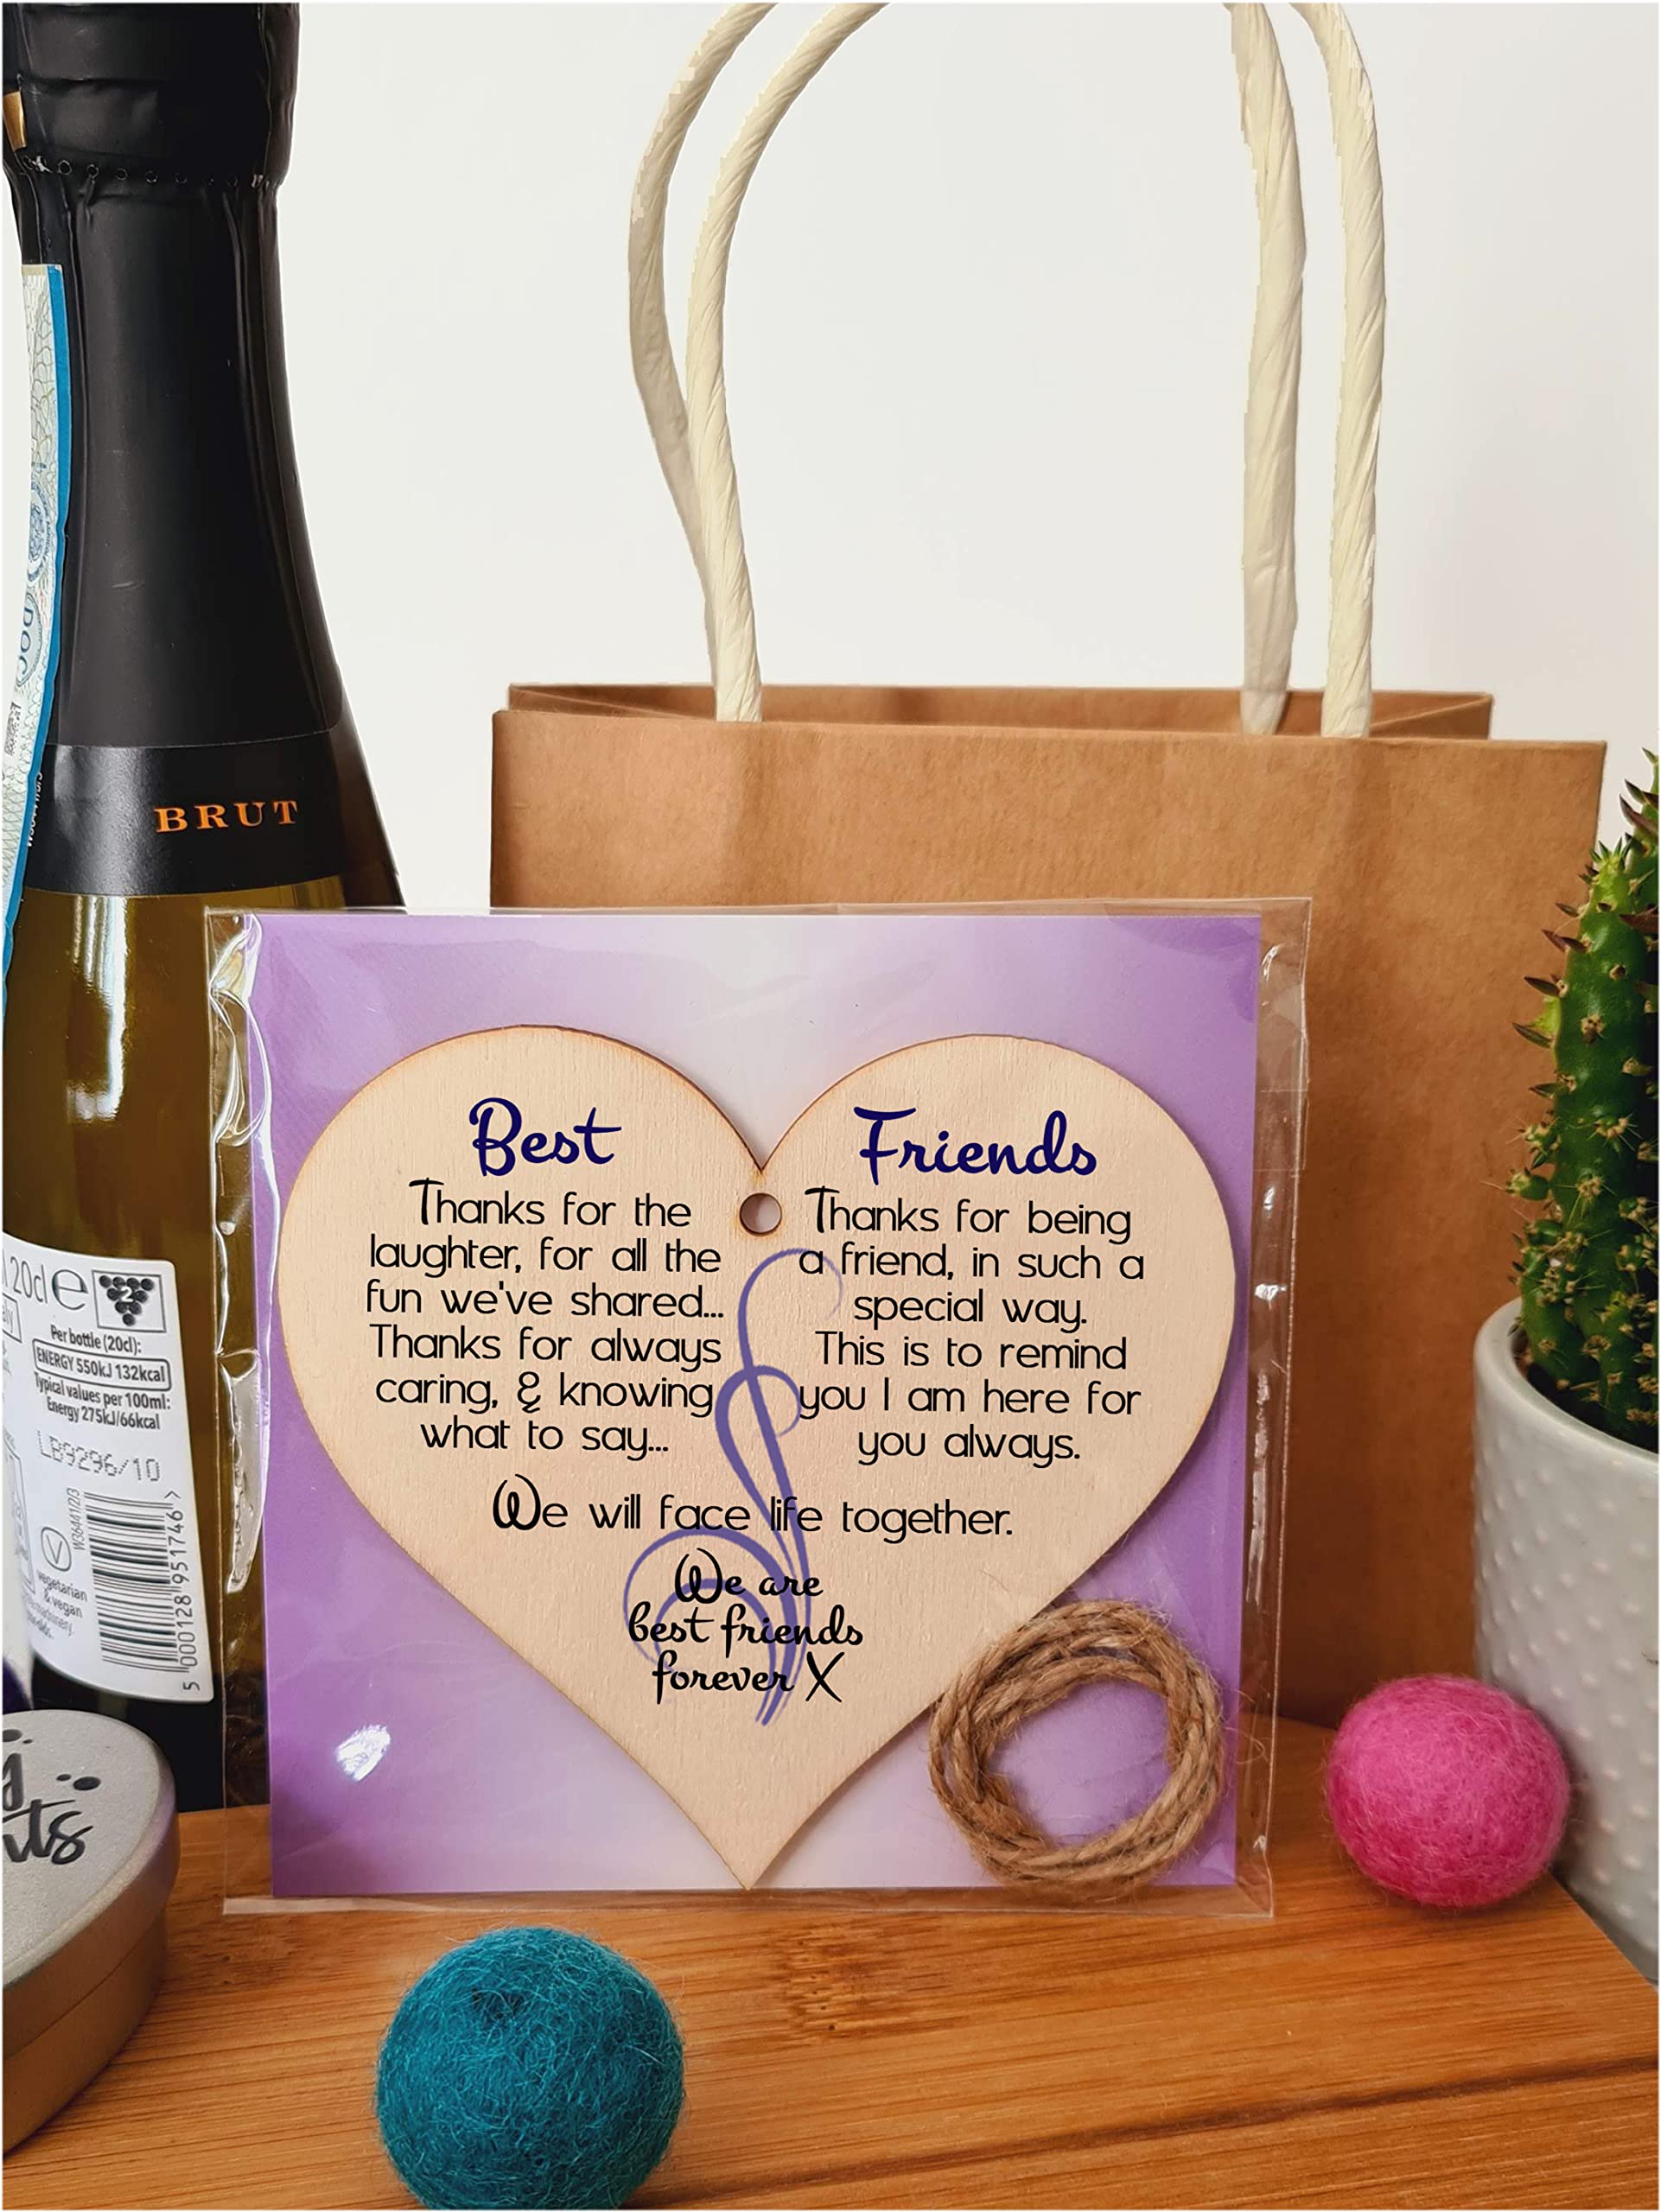 BRUT
DOC
20cl e
2
Per bottle (20cl):
ENERGY 550kJ 132kcal
Typical values per 100ml:
Energy 275kJ/66kcal
LB9296/10
W3644112/3
vegetarian
& vegan
5 000128 951746 >
Best
Thanks for the
laughter, for all the
fun we've shared...
Thanks for always
caring, & knowing
what to say...
Friends
Thanks for being
a friend, in such a
special way.
This is to remind
you I am here for
you always.
We will face life together.
We are
best friends
forever X